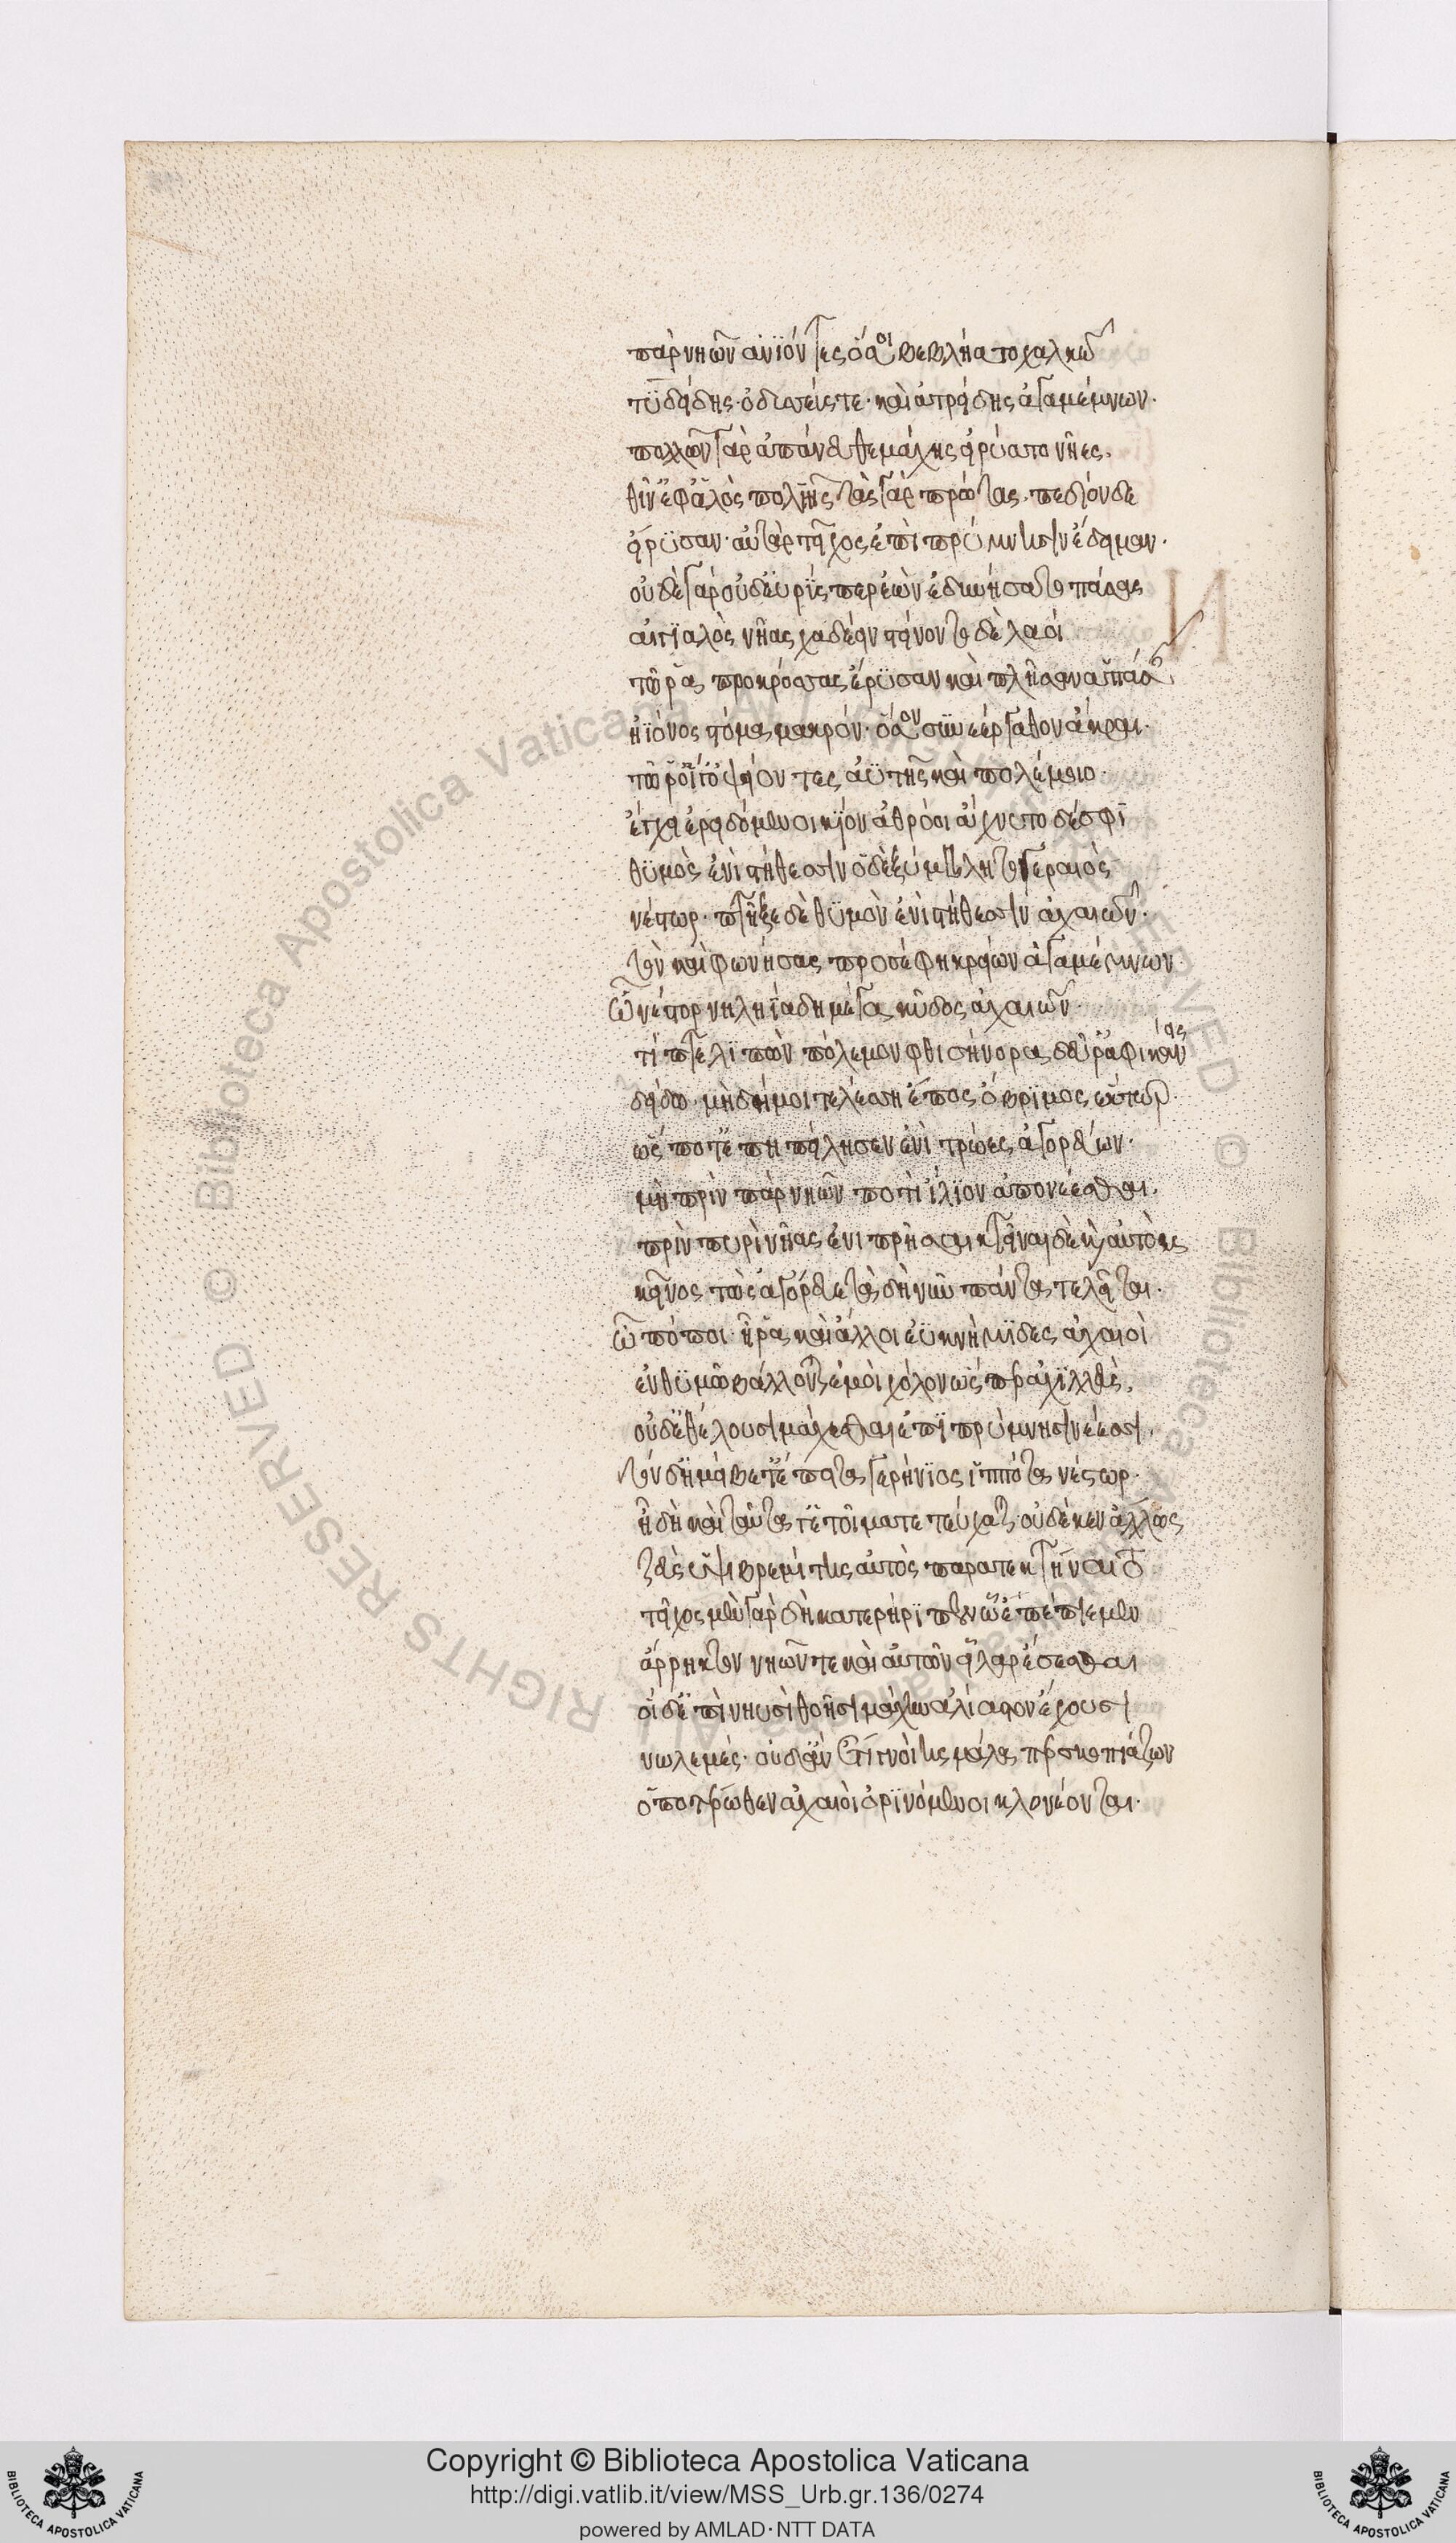 πὰρ νηῶν ἀνϊόντες ὅσοι βεβλήατο χαλκῶ
τϋδείδης· ὀδυσεύς τε· καὶ ἀτρείδης ἀγαμέμνων·
πολλὸν γὰρ ἀπάνευθε μάχης εἰρύατο νῆες.
θῖν' ἐφ' ἁλὸς πολιῆς τὰς γὰρ πρώτας πεδίονδε
εἴρϋσαν· αὐτὰρ τεῖχος ἐπὶ πρύμνησιν ἔδειμαν·
οὐδὲ γὰρ οὐδ' εὐρύς περ ἐὼν ἐδυνήσατο πάσας
αἰγϊαλὸς νῆας χαδέειν στείνοντο δὲ λαοί
τῶ ῥα προκρόσσας ἔρϋσαν καὶ πλῆσαν ἁπάσης
ἠϊόνος στόμα μακρόν· ὅσον συνεέργαθον ἄκραι·
τῶ ῥ' οἵγ' ὀψείοντες ἀϋτῆς καὶ πολέμοιο·
ἔγχει ἐρειδόμενοι κίον ἀθρόοι ἄχνυτο δέ σφϊ
θϋμὸς ἐνὶ στήθεσσιν ὁ δὲ ξύμβλητο γεραιὸς
νέστωρ· πτῆξε δὲ θϋμὸν ἐνὶ στήθεσσιν ἀχαιῶν·
τὸν καὶ φωνήσας προσέφη κρείων ἀγαμέμνων
ὦ νέστορ νηληϊάδη μέγα κῦδος ἀχαιῶν·
τί πτε λϊπὼν πόλεμον φθισήνορα δεῦρ' ἀφικάνεις
δείδω μὴ δή μοι τελέση ἔπος ὄβρϊμος ἕκτωρ·
ὥς ποτ' ἐπηπείλησεν ἐνὶ τρώεσσ' ἀγορεύων·
μὴ πρὶν πὰρ νηῶν ποτὶ ἴλϊον ἀπονέεσθαι.
πρὶν πυρὶ νῆας ἐνιπρῆσαι κτεῖναι δὲ καὶ αὐτούς
κεῖνος τὼς ἀγόρευε τὰ δὴ νῦν πάντα τελεῖται·
ὢ πόποι ἦ ῥα καὶ ἄλλοι ἐϋκνήμϊδες ἀχαιοὶ
ἐν θϋμῶ βάλλονται ἐμοὶ χόλον ὥς περ ἀχϊλλεὺς,
οὐδ' ἐθέλουσι μάχεσθαι ἐπὶ πρύμνησι νέεσσι.
τὸν δ' ἠμείβετ' ἔπειτα γερήνϊος ἱππότα νέστωρ·
ἦ δὴ καὶ ταῦτα γ' ἑτοῖμα τετεύχαται οὐδέ κεν ἄλλως
ζεὺς ὑψιβρεμέτης αὐτὸς παρατεκτήναιτο
τεῖχος μὲν γὰρ δὴ κατερήρϊπεν ὧ ἐπέπιθμεν
ἄρρηκτον νηῶν τε καὶ αὐτῶν εἶλαρ ἔσεσθαι
οἱ δ' ἐπὶ νηυσὶ θοῆσι μάχην ἀλίαστον ἔχουσι
νωλεμές· οὐδ' ἂν ἔτι γνοίης μάλα περ σκοπιάζων
ὁπποτέρωθεν ἀχαιοὶ ὀρϊνόμενοι κλονέονται·
Copyright © Biblioteca Apostolica Vaticana
http://digi.vatlib.it/view/MSS_Urb.gr.136/0274
powered by AMLAD·NTT DATA